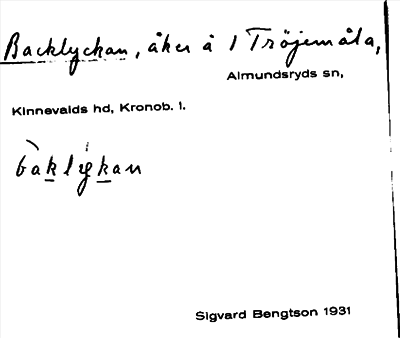 Backlyckan, åker å 1 Tröjemåla,
Almundsryds sn,
Kinnevalds hd, Kronob. l.
bàklýkan
Sigvard Bengtson 1931